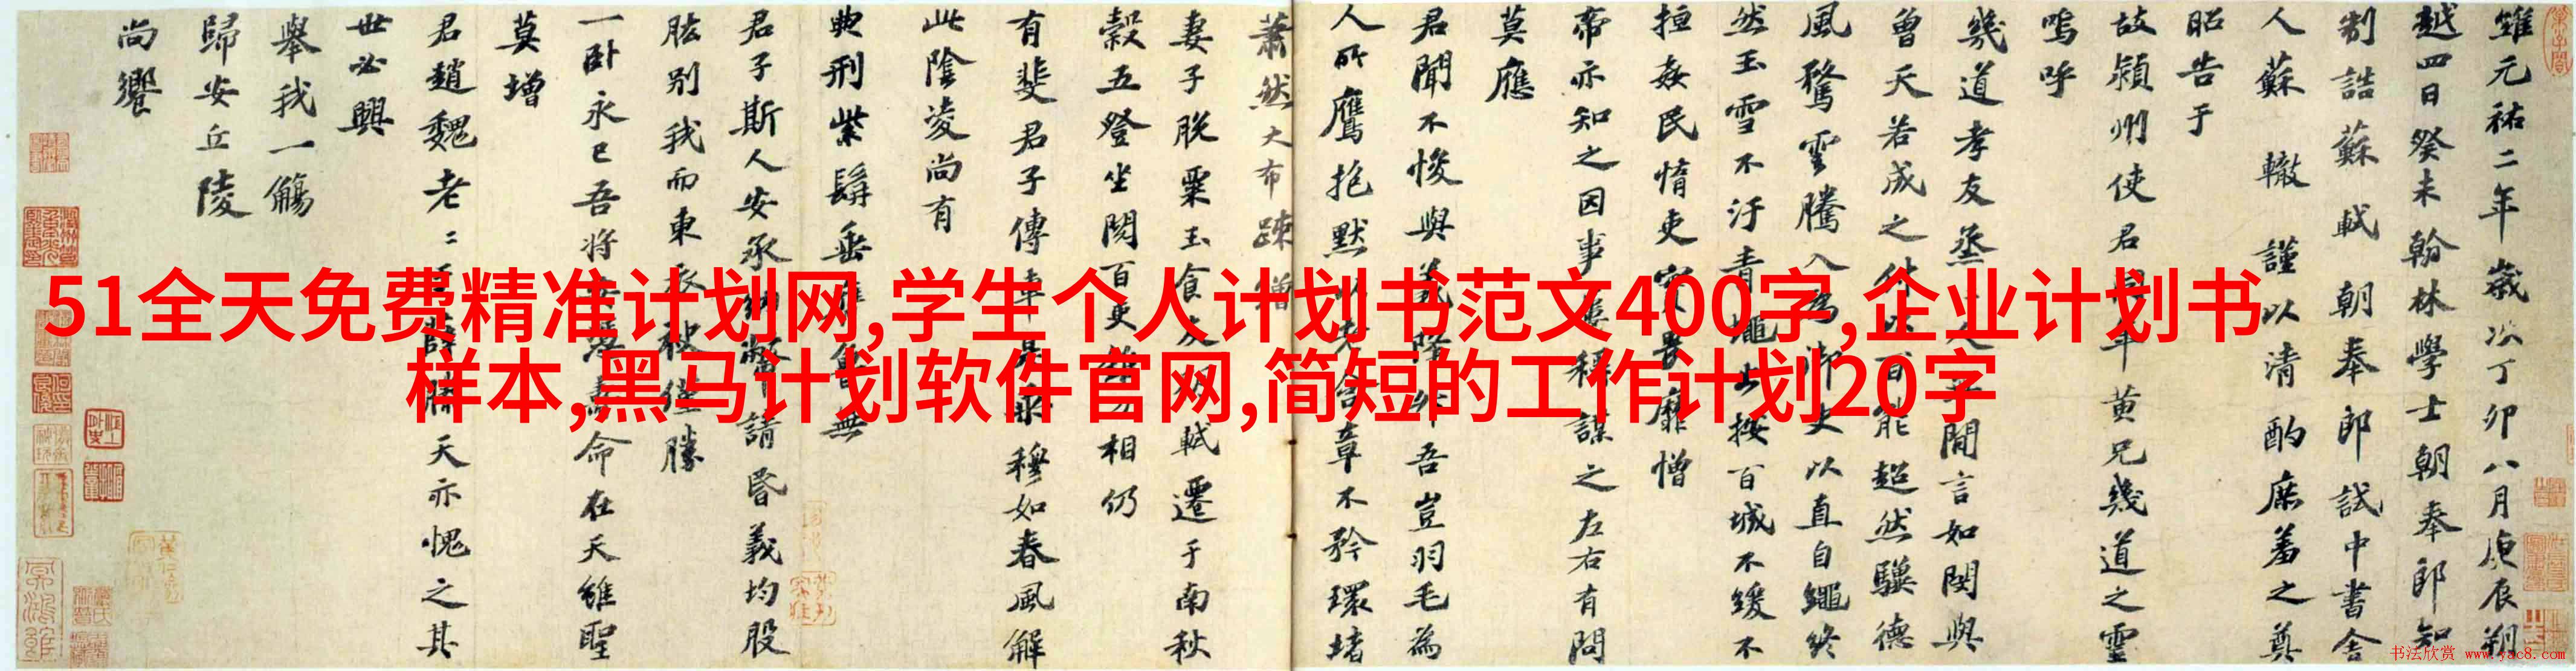 51全天免费精准计划网,学生个人计划书范文400字,企业计划书
样本,黑马计划软件官网,简短的工作计划20字
維元祐二年歲次丁卯八月庚辰朔
越四日癸未翰林學士朝奉郎知
制誥蘇軾朝奉郎試中書舍
人蘇轍謹以清酌庶羞之奠
昭告于
故潁州使君同年黃兄幾道之靈
嗚呼
幾道孝友烝烝人無間言如閔與
曾天若成之付以百能超然驥德
風騖雲騰入為御史以直自繩終
然玉雪不汙青蠅出按百城不緩不
搄姦民惰吏實畏靡憎
帝亦知之因事屢稱謀之左右有問
莫應
君聞不悛與義降升吾豈羽毛為
人所鷹抱默以老含章不矜環堵
蕭然大布疎繒
妻子脫粟玉食友朋軾遷于南秋
穀五登坐閱百吏錐刀相仍
有斐君子傳車是乘穆如春風解
此陰凌尚有
典刑紫髯垂膺魯無
君子斯人安承納幣請昏義均股
肱別我而東衣袂僅勝
一臥永已吾將安憑壽命在天雖聖
莫增
君趙魏老〻于薛滕天亦愧之其
世必興
舉我一觴
歸安丘陵
尚饗
书法欣赏 www.yac8.com